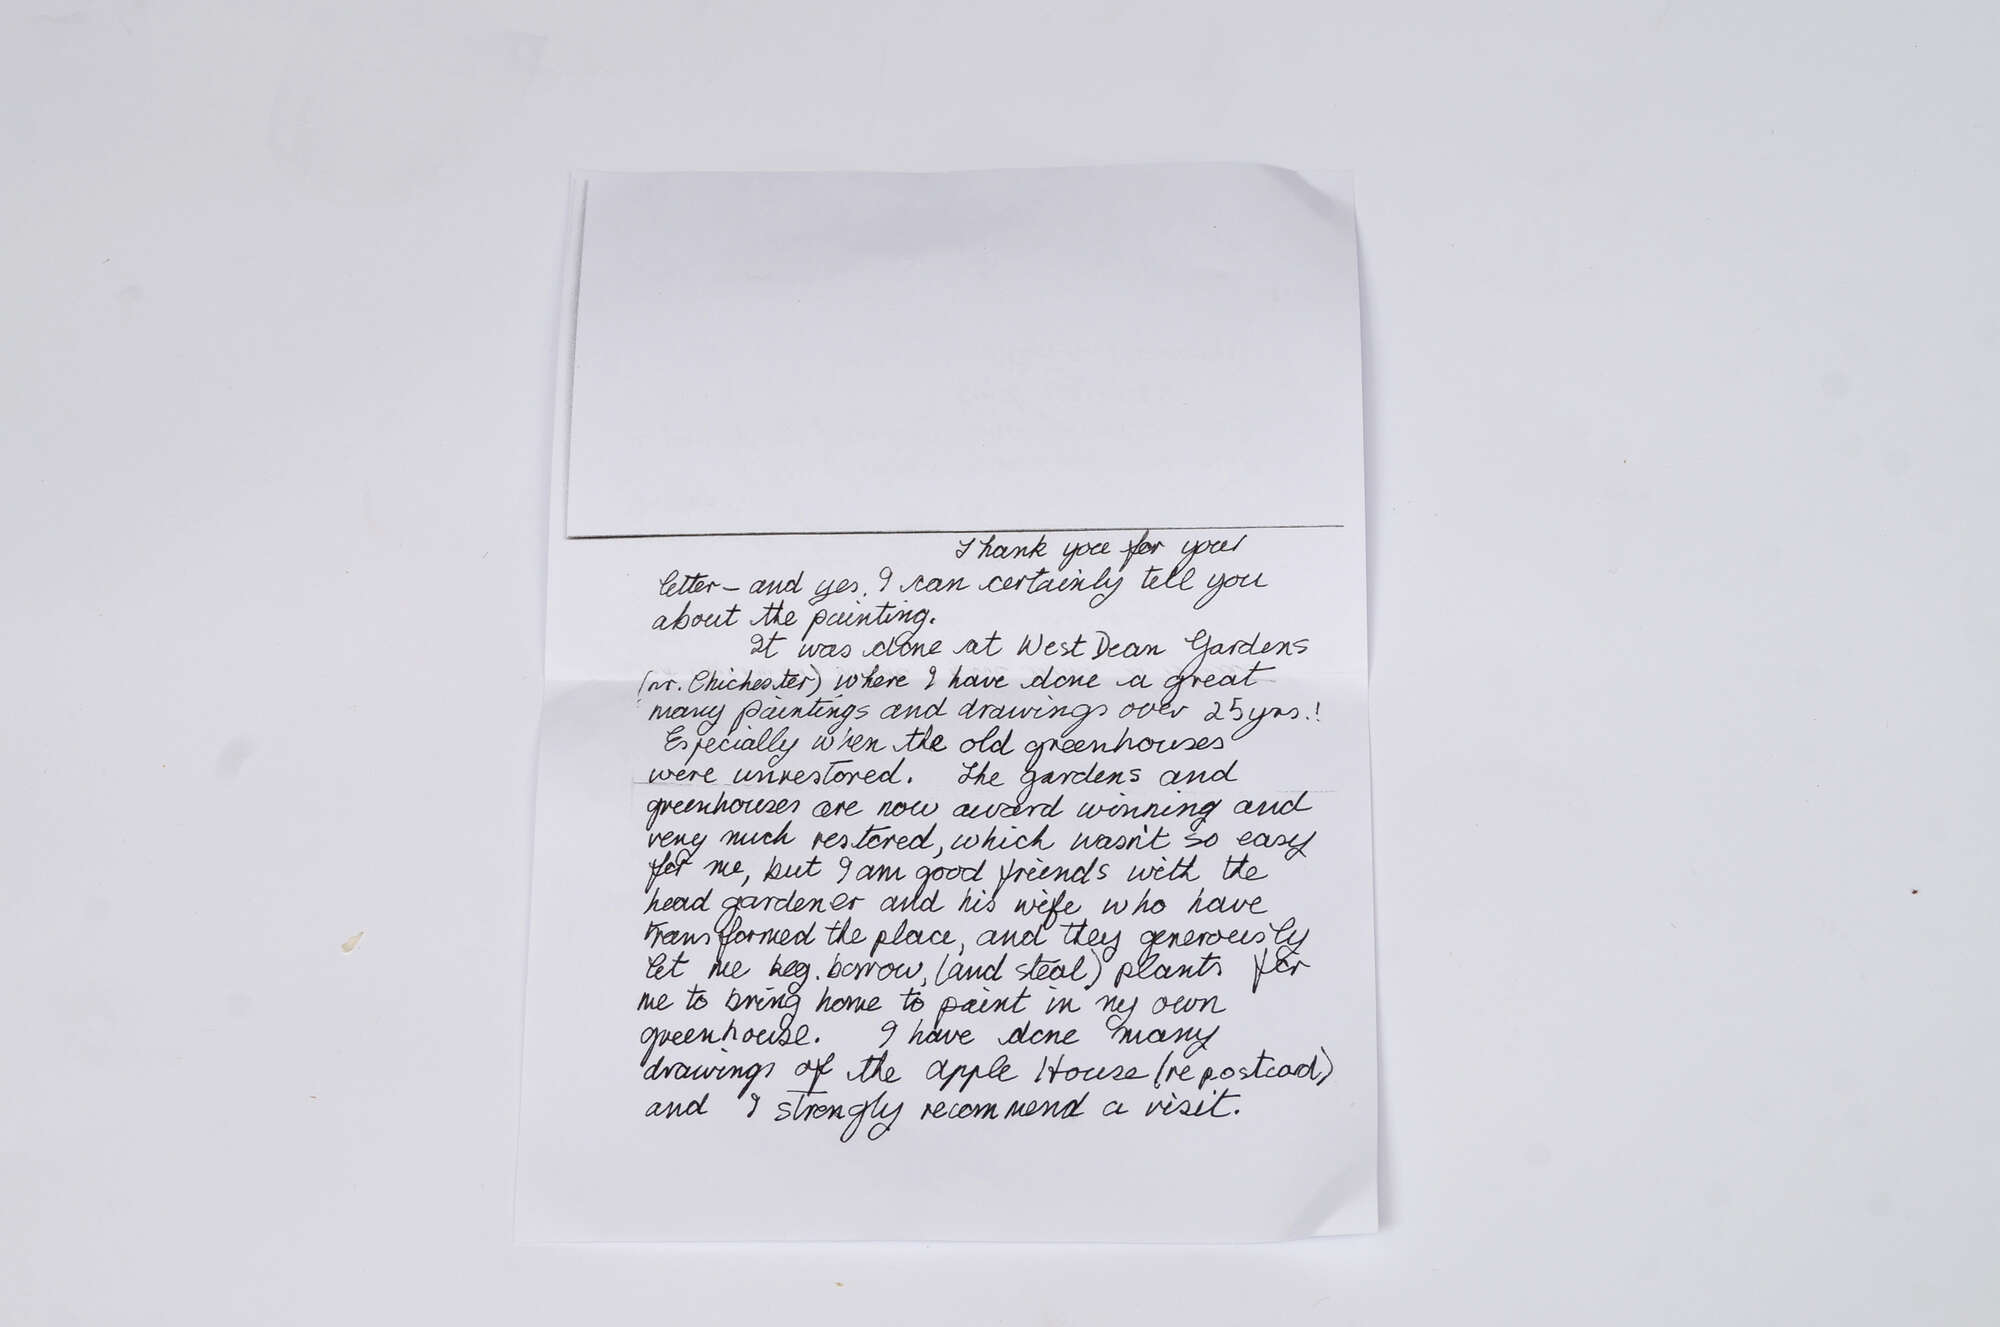 Thank you for your
letter – and yes, I can certainly tell you
about the painting.
It was done at West Dean Gardens
(nr. Chichester) where I have done a great
many paintings and drawings over 25yrs.!
Especially when the old greenhouses
were unrestored. The gardens and
greenhouses are now award winning and
very much restored, which wasn't so easy
for me, but I am good friends with the
head gardener and his wife who have
transformed the place, and they generously
let me beg. borrow, (and steal) plants for
me to bring home to paint in my own
greenhouse. I have done many
drawings of the apple House (re postcard)
and I strongly recommend a visit.